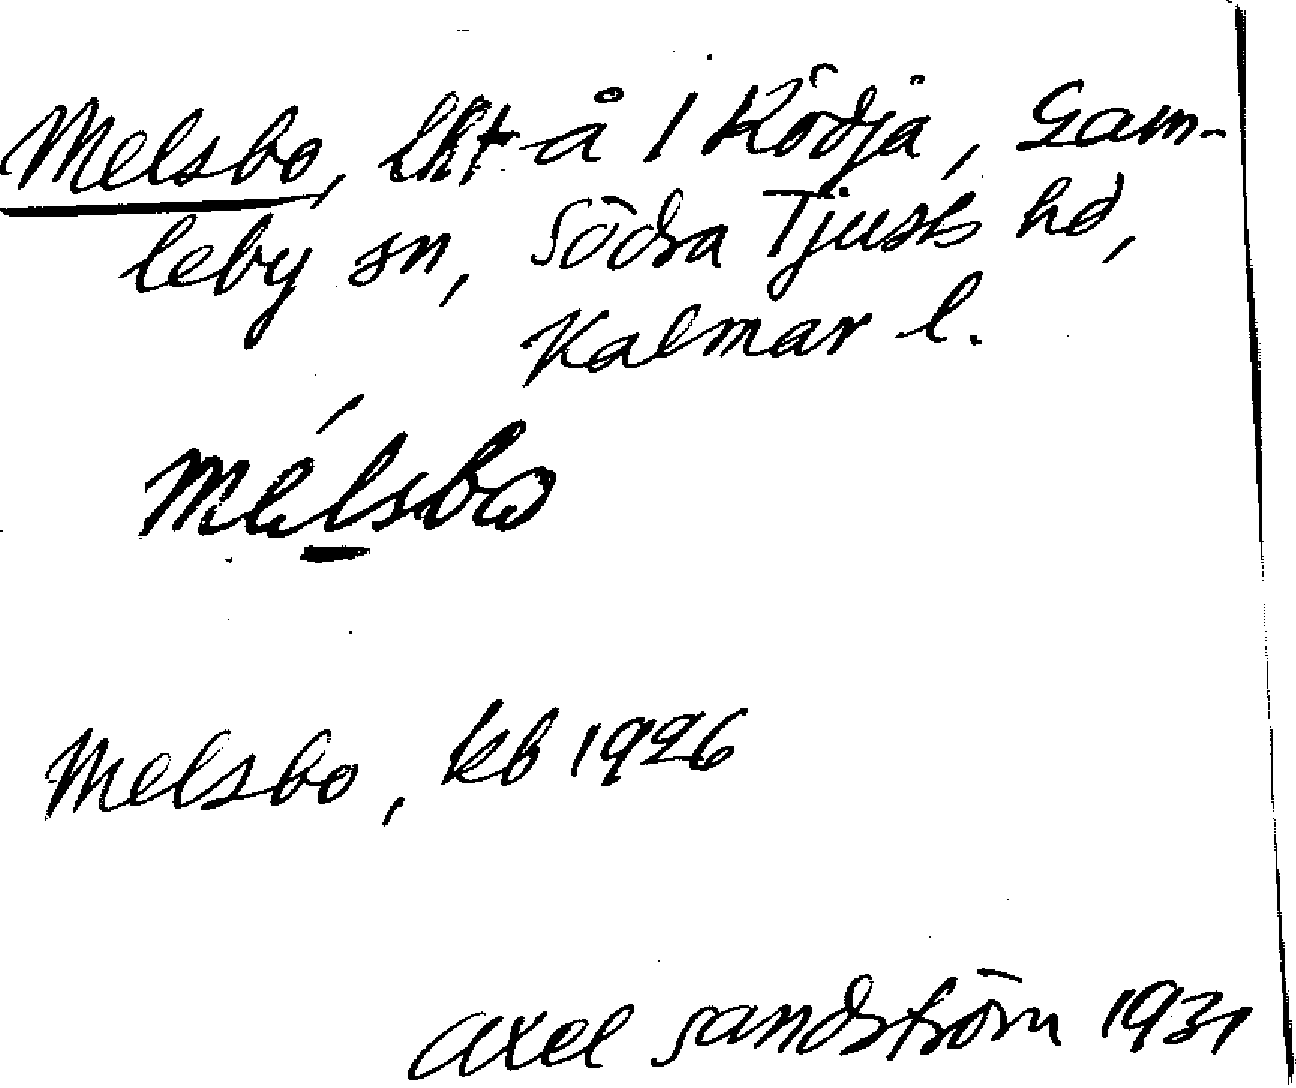 Melsbo, lht å 1 Rödja, Gam-
leby sn, Södra Tjusts hd,
Kalmar l.
mélsbo
Melsbo, kb 1926
Axel Sandström 1931